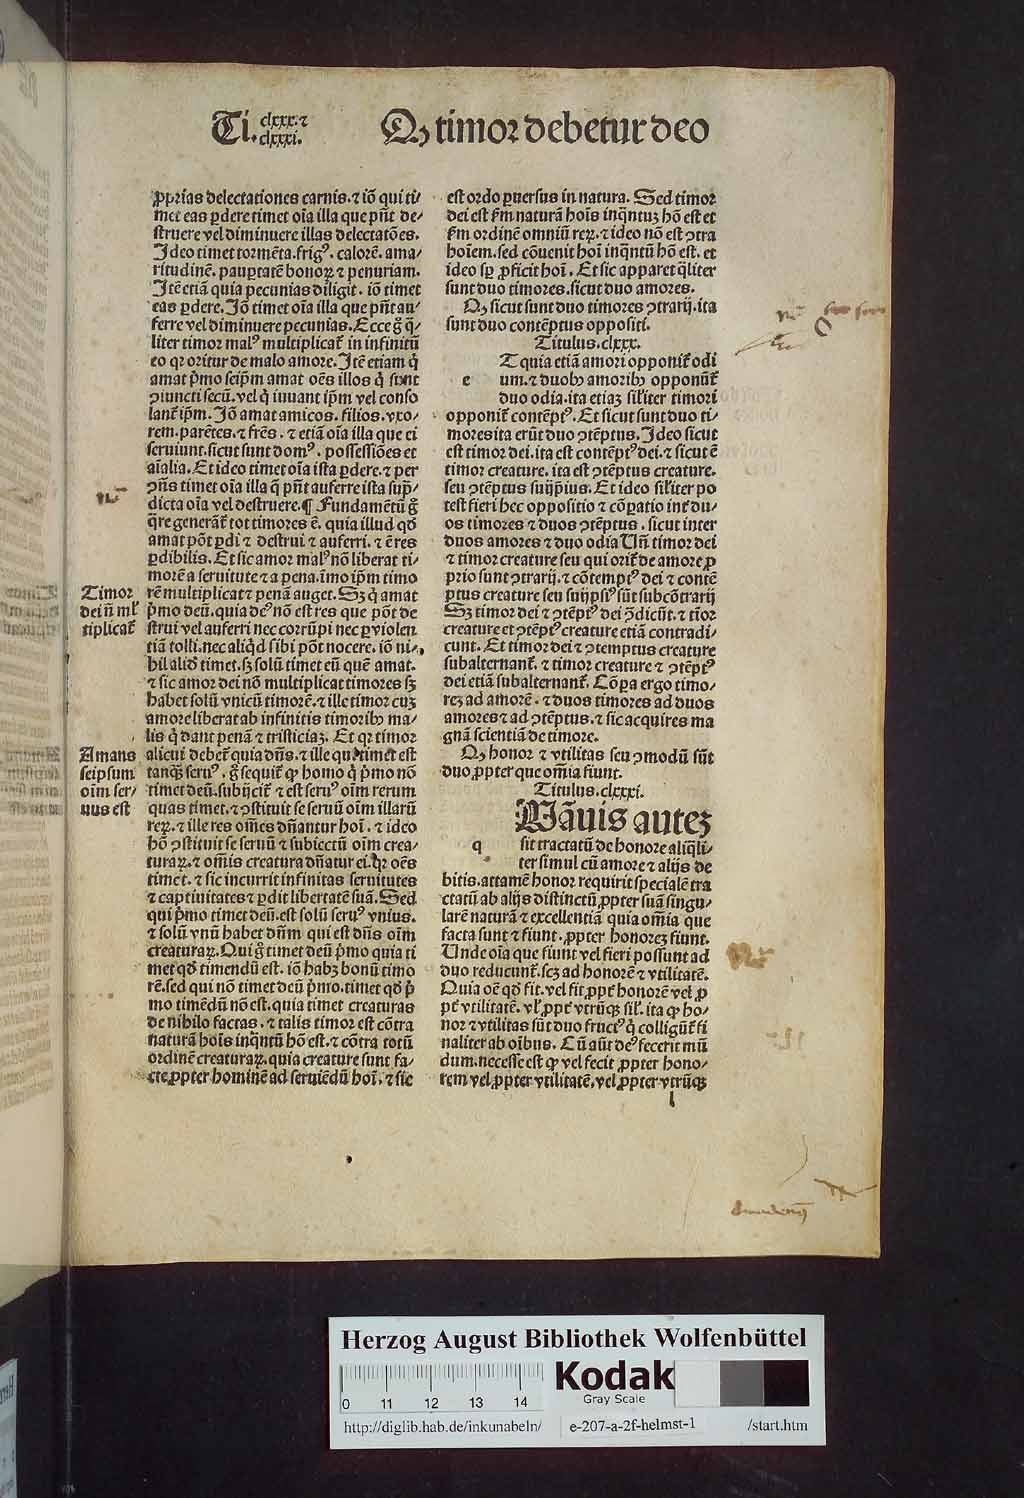 Ti. clxxx.⁊ clxxxi. Qꝫ timor debetur deo
ꝓprias delectationes carnis.⁊ iō qui ti⸗
met eas ꝑdere timet oīa illa que pn̄t de⸗
struere vel diminuere illas delectatōes.
Ideo timet tormēta.frigꝰ.calorē.ama⸗
ritudinē.pauꝑtatē bonoꝝ ⁊ penuriam.
Itē etiā quia pecunias diligit.iō timet
eas ꝑdere.Iō timet oīa illa que pn̄t au⸗
ferre vel diminuere pecunias.Ecce g̊ q̄⸗
liter timor malꝰ multiplicat᷑ in infinitū
eo qꝛ oritur de malo amore.Itē etiam q̇
amat pͥmo seip̄m amat oēs illos q̇ sunt
ꝯiuncti secū.vel q̇ iuuant ip̄m vel conso
lant᷑ ip̄m.Iō amat amicos.filios.vxo⸗
rem.parētes.⁊ frēs.⁊ etiā oīa illa que ei
seruiunt.sicut sunt domꝰ.possessiōes et
aīalia.Et ideo timet oīa ista ꝑdere.⁊ per
ꝯn̄s timet oīa illa q̄ pn̄t auferre ista supͣ⸗
dicta oīa vel destruere.¶ Fundamētū g̊
q̄re generāt᷑ tot timores ē.quia illud qd̓
amat pōt ꝑdi ⁊ destrui ⁊ auferri.⁊ ē res
ꝑdibilis.Et sic amor malꝰ nō liberat ti⸗
morē a seruitute ⁊ a pena.īmo ip̄m timo
rē multiplicat ⁊ penā auget.Sꝫ q̇ amat
pͥmo deū.quia deꝰ nō est res que pōt de
strui vel auferri nec corrūpi nec ꝑ violen
tiā tolli.nec aliqͥd sibi pōt nocere.iō ni⸗
hil aliud timet.sꝫ solū timet eū quē amat.
⁊ sic amor dei nō multiplicat timores sꝫ
habet solū vnicū timorē.⁊ ille timor cuꝫ
amore liberat ab infinitis timoribꝰ ma⸗
lis q̇ dant penā ⁊ tristiciaꝫ.Et qꝛ timor
alicui debet᷑ quia dn̄s.⁊ ille qui timet est
tanqͣꝫ seruꝰ.g̊ sequit᷑ ꝙ homo q̇ pͥmo nō
timet deū.subijcit᷑ ⁊ est seruꝰ oīm rerum
quas timet.⁊ ꝯstituit se seruū oīm illarū
reꝝ.⁊ ille res om̄es dn̄antur hoī.⁊ ideo
hō ꝯstituit se seruū ⁊ subiectū oīm crea⸗
turaꝝ.⁊ om̄is creatura dn̄atur ei.qꝛ oēs
timet.⁊ sic incurrit infinitas seruitutes
⁊ captiuitates ⁊ ꝑdit libertatē suā.Sed
qui pͥmo timet deū.est solū seruꝰ vnius.
⁊ solū vnū habet dn̄m qui est dn̄s oīm
creaturaꝝ.Qui g̊ timet deū pͥmo quia ti
met qd̓ timendū est.iō habꝫ bonū timo
rē.sed qui nō timet deū pͥmo.timet qd̓ pͥ
mo timēdū nō est.quia timet creaturas
de nihilo factas.⁊ talis timor est cōtra
naturā hoīs inqͣntū hō est.⁊ cōtra totū
ordinē creaturaꝝ.quia creature sunt fa⸗
cte ꝓpter hominē ad seruiēdū hoī.⁊ sic
Timor
dei nō ml̓
tiplicat᷑
Amans
seipsum
oīm ser⸗
uus est
est ordo ꝑuersus in natura. Sed timor
dei est ẜm naturā hoīs inqͣntuꝫ hō est et
ẜm ordinē omniū reꝝ.⁊ ideo nō est ꝯtra
hoīem.sed cōuenit hoī inqͣntū hō est.et
ideo sp̄ ꝓficit hoī.Et sic apparet qͣliter
sunt duo timores.sicut duo amores.
Qꝫ sicut sunt duo timores ꝯtrarij.ita
sunt duo contēptus oppositi.
Titulus.clxxx.
e T quia etiā amori opponit᷑ odi
um.⁊ duobꝰ amoribꝰ opponūt᷑
duo odia.ita etiaꝫ sil̓iter timori
opponit᷑ contēptꝰ.Et sicut sunt duo ti⸗
mores ita erūt duo ꝯtēptus.Ideo sicut
est timor dei.ita est contēptꝰ dei.⁊ sicut ē
timor creature.ita est ꝯtēptus creature.
seu ꝯtēptus suijp̄ius.Et ideo sil̓iter po
test fieri hec oppositio ⁊ cōꝑatio int᷑ du⸗
os timores ⁊ duos ꝯtēptus.sicut inter
duos amores ⁊ duo odia Un̄ timor dei
⁊ timor creature seu qui orit᷑ de amore ꝓ
prio sunt ꝯtrarij.⁊ cōtemptꝰ dei ⁊ contē
ptus creature seu suijpsiꝰ sūt subcōtrarij
Sꝫ timor dei ⁊ ꝯtēptꝰ dei ꝯdicūt.⁊ tīor
creature et ꝯtēptꝰ creature etiā contradi⸗
cunt.Et timor dei ⁊ ꝯtemptus creature
subalternant᷑.⁊ timor creature ⁊ ꝯtēptꝰ
dei etiā subalternant᷑.Cōꝑa ergo timo⸗
reꝫ ad amorē.⁊ duos timores ad duos
amores ⁊ ad ꝯtēptus.⁊ sic acquires ma
gnā scientiā de timore.
Qꝫ honor ⁊ vtilitas seu ꝯmodū sūt
duo ꝓpter que om̄ia fiunt.
Titulus.clxxxi.
q Uāuis auteꝫ
sit tractatū de honore aliqͣli⸗
ter simul cū amore ⁊ alijs de
bitis.attamē honor requirit specialē tra
ctatū ab alijs distinctū ꝓpter suā singu⸗
larē naturā ⁊ excellentiā quia om̄ia que
facta sunt ⁊ fiunt.ꝓpter honoreꝫ fiunt.
Unde oīa que fiunt vel fieri possunt ad
duo reducunt᷑.scꝫ ad honorē ⁊ vtilitatē.
Quia oē qd̓ fit.vel fit ꝓpt᷑ honorē vel ꝓ
pt᷑ vtilitatē.vl̓ ꝓpt᷑ vtrūqꝫ sil̓.ita ꝙ ho⸗
nor ⁊ vtilitas sūt duo fructꝰ q̇ colligūt᷑ fi
naliter ab oībus.Cū aūt deꝰ fecerit mū
dum.necesse est ꝙ vel fecit ꝓpter hono⸗
rem vel ꝓpter vtilitatē.vel ꝓpter vtrūqꝫ
l
Herzog August Bibliothek Wolfenbüttel
0 11 12 13 14
Kodak
Gray Scale
http://diglib.hab.de/inkunabeln/ e-207-a-2f-helmst-1 /start.htm